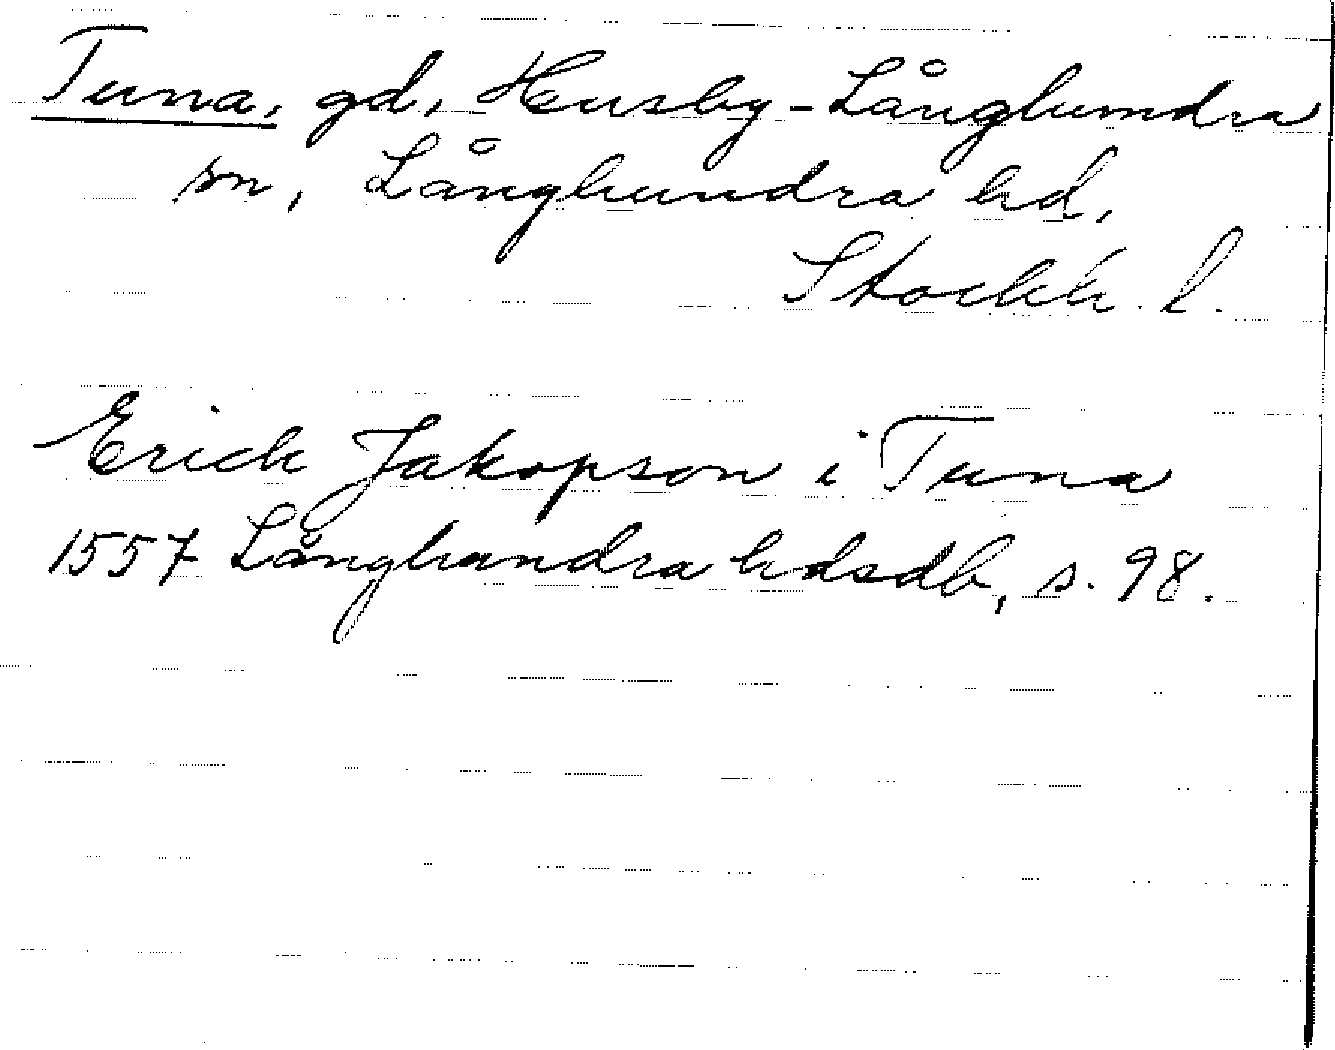 Tuna, gd, Husby-Långhundra
sn, Långhundra hd,
Stockh. l.
Erich Jakopson i Tuna
1557 Långhundra hdsdb, s. 98.